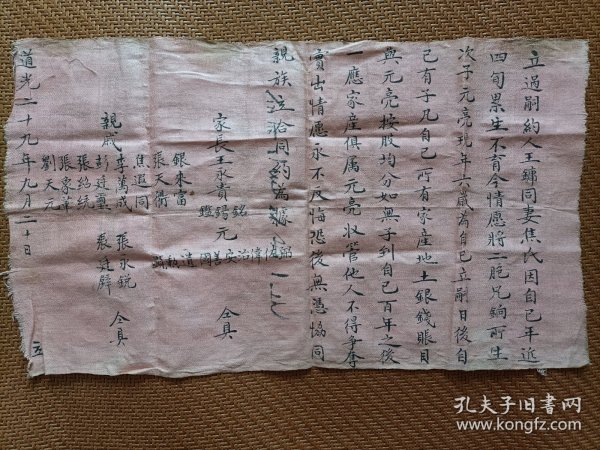 立過嗣約人王鏽同妻焦氏因自己年近
四旬累生不育今情愿將二胞兄銄所生
次子元亮現年六歲為自己立嗣日後自
己有子凡自己所有家產地土銀錢賬目
與元亮按股均分如無子到自己百年之後
一應家產俱属元亮收管他人不得爭奪
實出情愿永不反悔恐後無憑協同
親族立拾同約為據
家長王永貴 元 仝具
銀朱富
張天衢
焦遐同
親戚 李萬成 張永銳 仝具
彭廷璽 張廷辟
張紹統
張家華
劉天元
道光二十九年九月二十日 立
孔夫子旧书网
www.kongfz.com